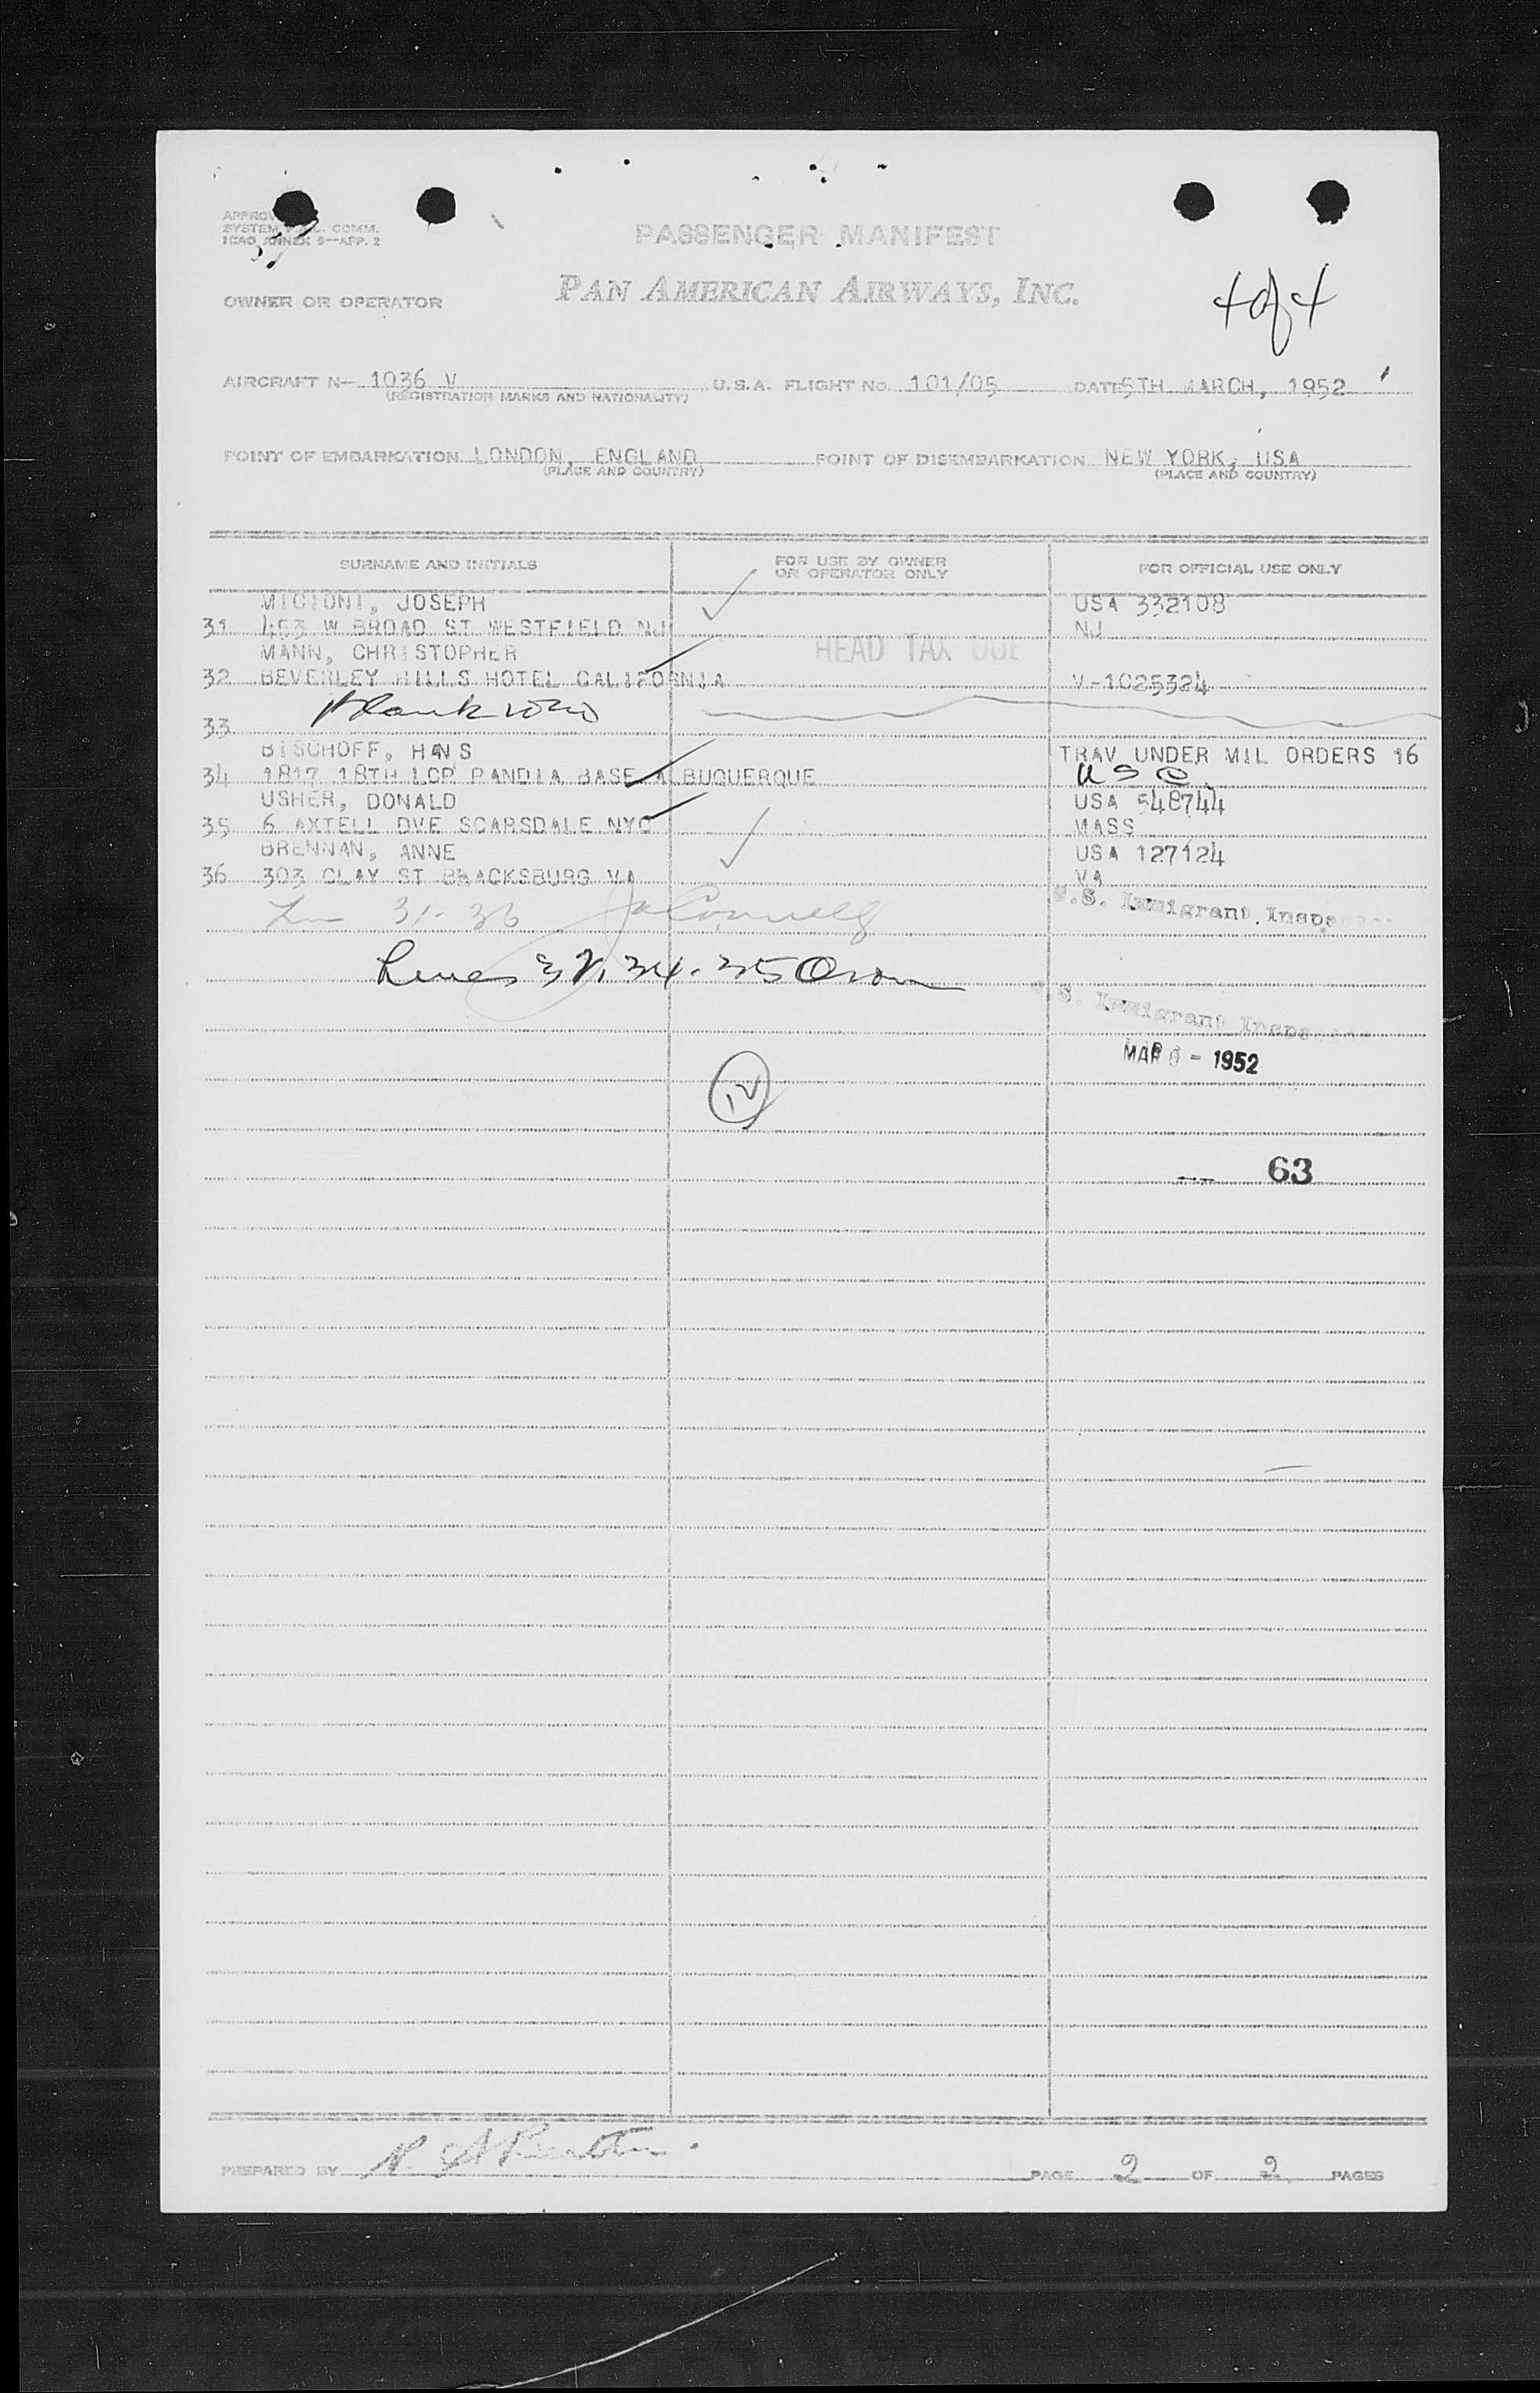 PASSENGER MANIFEST
SYSTEM COMM.
ICAO ANNEX 9—APP. 2
OWNER OR OPERATOR PAN AMERICAN AIRWAYS, INC. 4 of 4
AIRCRAFT N— 1036 V U.S.A. FLIGHT No. 101/05 DATE 5TH MARCH, 1952
(REGISTRATION MARKS AND NATIONALITY)
POINT OF EMBARKATION LONDON, ENGLAND POINT OF DISEMBARKATION NEW YORK, USA
(PLACE AND COUNTRY) (PLACE AND COUNTRY)
SURNAME AND INITIALS FOR USE BY OWNER OR OPERATOR ONLY FOR OFFICIAL USE ONLY
MICIONI, JOSEPH USA 332108
31 453 W BROAD ST WESTFIELD NJ NJ
MANN, CHRISTOPHER HEAD TAX DUE
32 BEVERLEY HILLS HOTEL CALIFORNIA V-1025324
33 Blank
BISCHOFF, HANS TRAV UNDER MIL ORDERS 16
34 1817 18TH LOP PANDIA BASE ALBUQUERQUE U S C
USHER, DONALD USA 548744
35 6 AXTELL DVE SCARSDALE NYC MASS
BRENNAN, ANNE USA 127124
36 303 CLAY ST BLACKSBURG VA VA
31-36 U.S. Immigrant Inspector
Lines 32, 34-35
U.S. Immigrant Inspector
MAR 6 - 1952
12
63
PREPARED BY PAGE 2 OF 2 PAGES